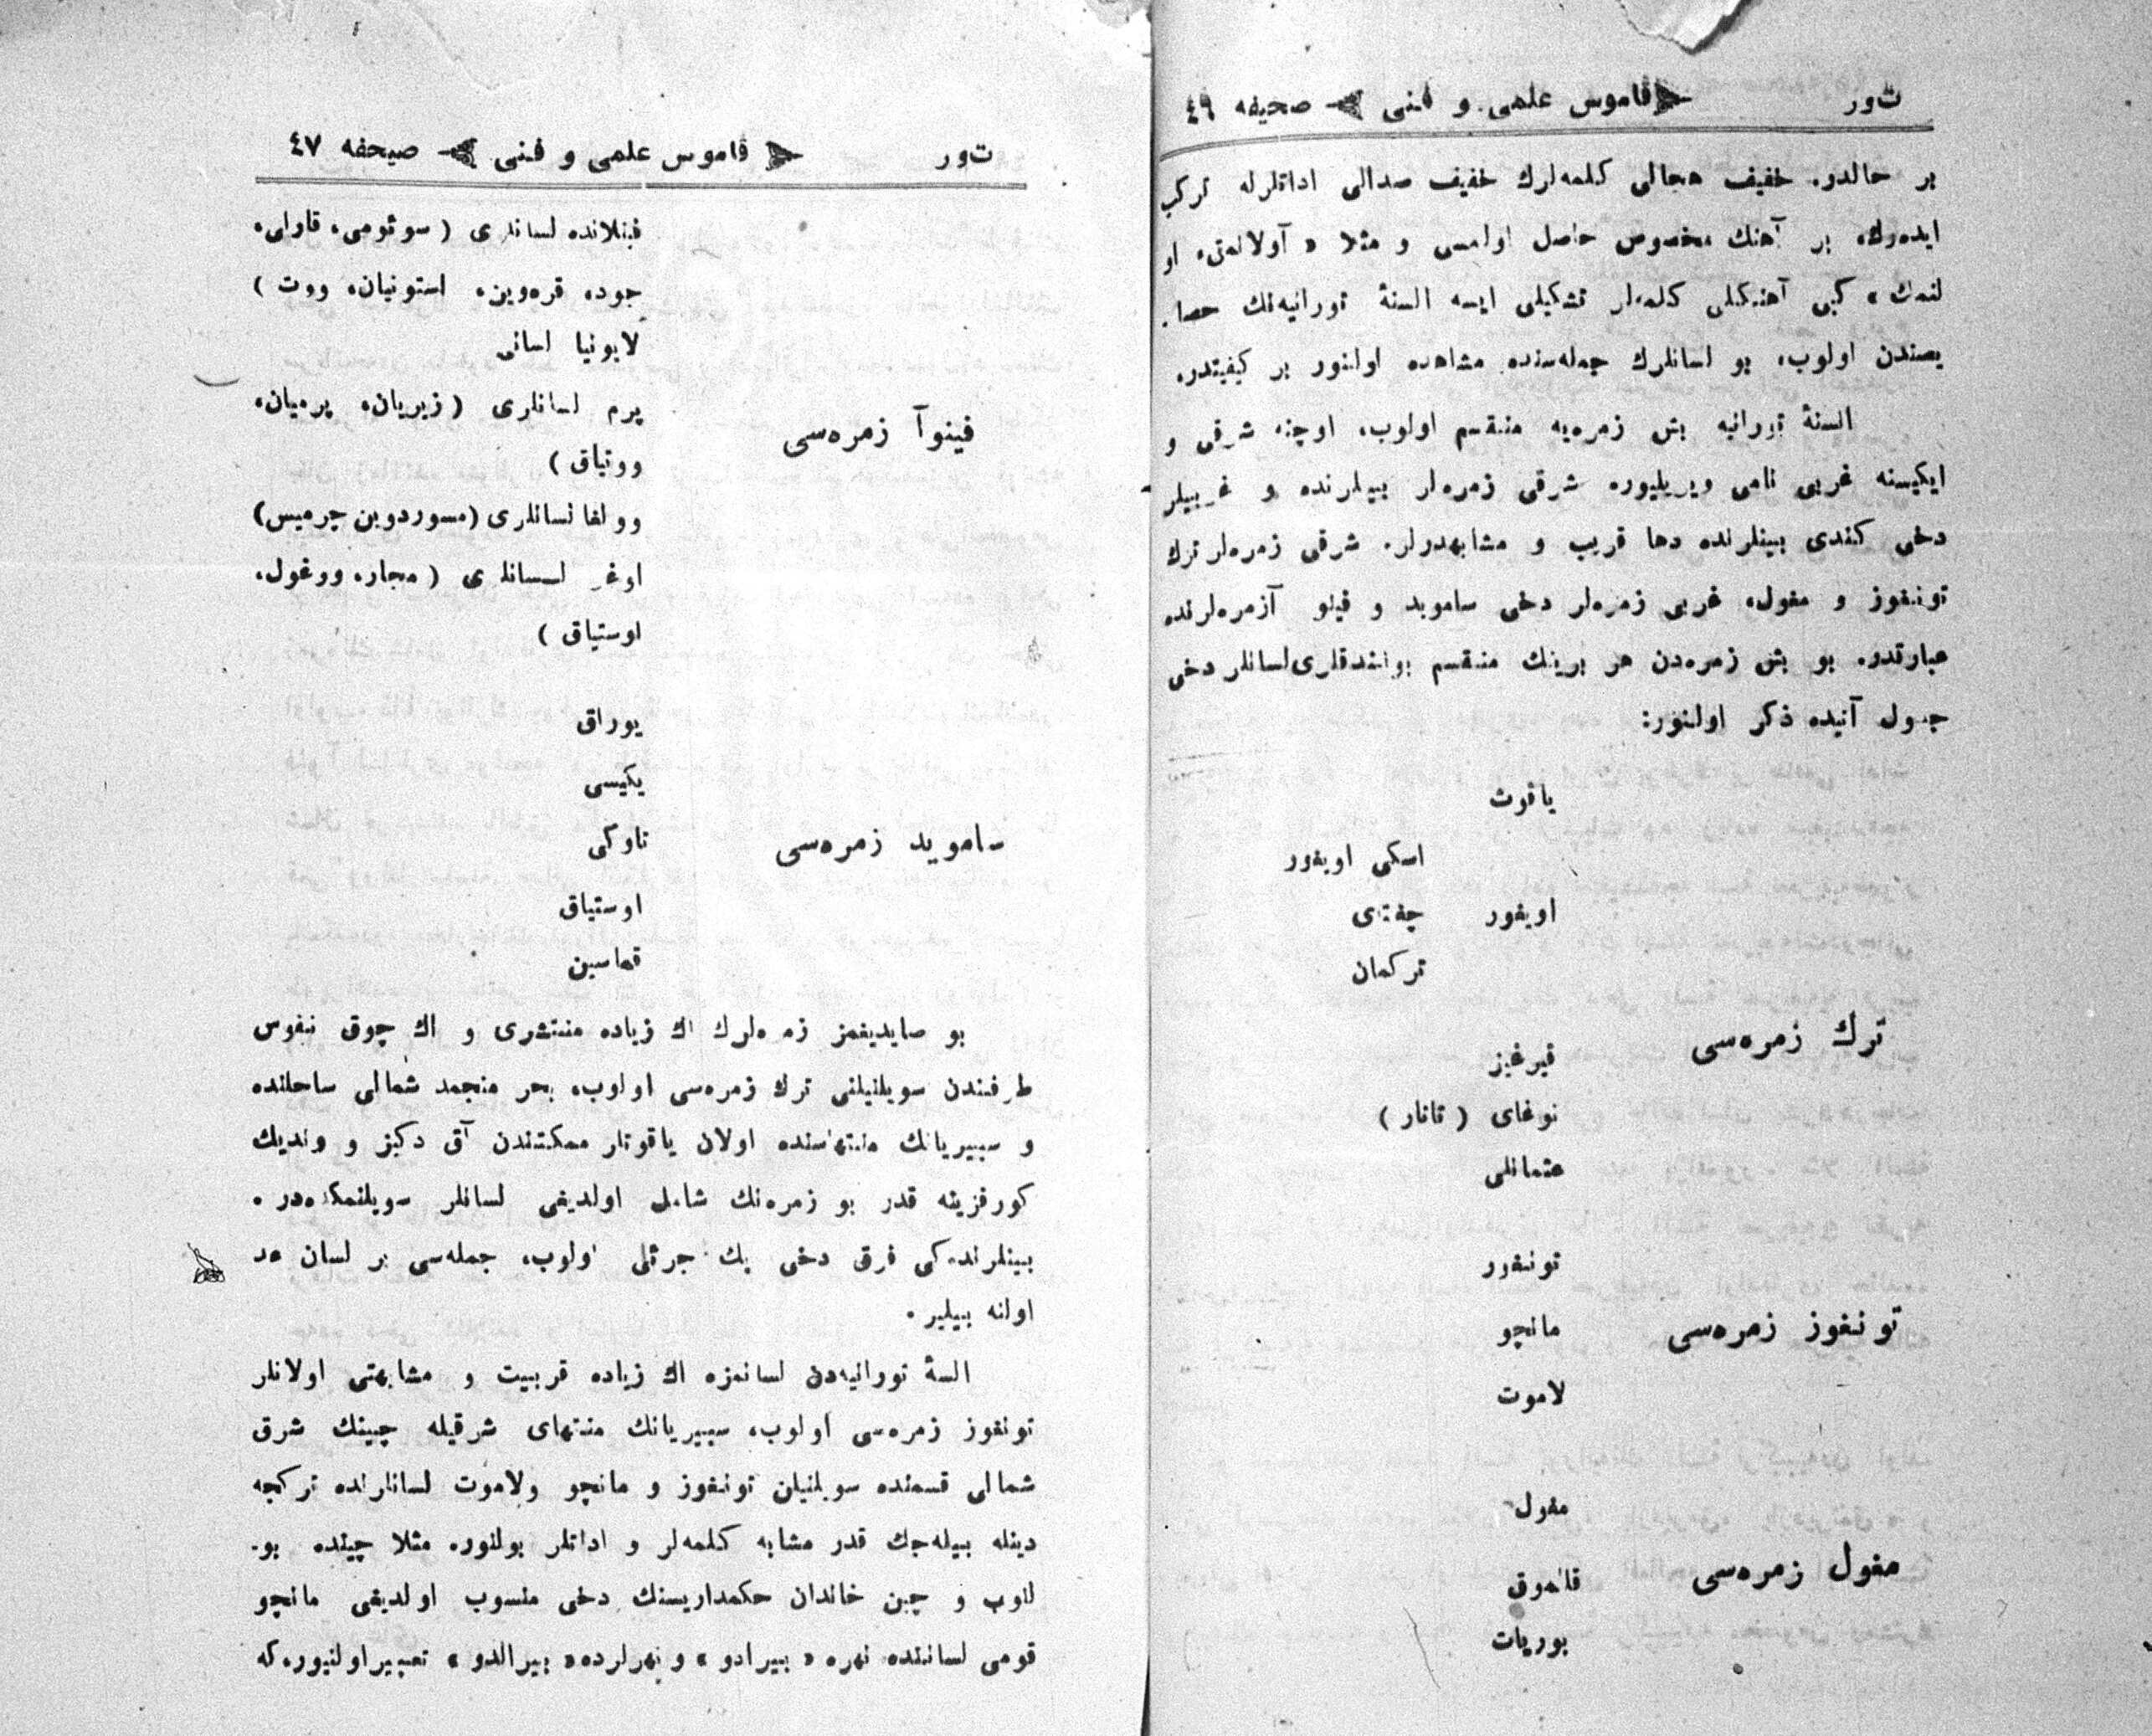 ث‌ور قاموس علمی و فنی صحیفه ٤٩
بر حالدو. خفیف هجالی کلمه‌لرك خفیف صدالی اداتلرله ترکب
ایده‌رك، بر آهنك مخصوص حاصل اولمسی و مثلا « آولانمق، او
لنمك » کبی آهنکلی کلمه‌لر تشکیلی ایسه السنهٔ تورانیه‌نك خصا.
یصندن اولوب، بو لسانلرك جمله‌سنده مشاهده اولنور بر کیفیتدر.
السنهٔ تورانیه بش زمره‌یه منقسم اولوب، اوچنه شرقی و
ایکیسنه غربی نامی ویریلیور. شرقی زمره‌لر بینلرنده و غربیلر
دخی کندی بینلرنده دها قریب و مشابهدرلر. شرقی زمره‌لر ترك
تونغوز و مغول، غربی زمره‌لر دخی ساموید و فینو آزمره‌لرنده
عبارتدو. بو بش زمره‌دن هر برینك منقسم بولندقلری لسانلر دخی
جدول آتیده ذکر اولنور:
یاقوت
اسکی اویغور
اویغور چغتای
ترکمان
ترك زمره‌سی قیرغیز
نوغای ( تاتار )
عثمانلی
تونغوز
تونغوز زمره‌سی مانچو
لاموت
مغول
مغول زمره‌سی قالموق
بوریات
ت‌ور قاموس علمی و فنی صیحفه ٤٧
فینلانده لسانلری ( سوئومی، قاولی،
جوده، قره‌وین، استونیان، ووت )
لاپونیا لسانی
فینوآ زمره‌سی پرم لسانلری (زیریان، پرمیان،
ووتیاق )
وولغا لسانلری (مسوردوین چرمیس)
اوغر لسانلری ( مجار، ووغول،
اوستیاق )
یوراق
یکیسی
ساموید زمره‌سی تاوکی
اوستیاق
قماسین
بو صایدیغمز زمره‌لرك اك زیاده منتشری و اك چوق نفوس
طرفندن سویلنیلنی ترك زمره‌سی اولوب، بحر منجمد شمالی ساحلنده
و سیبریانك منتهاسنده اولان یاقوتلر مملکتندن آق دکیز و وندیك
کورفزینه قدر بو زمره‌نك شامل اولدیغی لسانلر سویلنمکده‌در.
بینلرنده‌کی فرق دخی پك جزئی اولوب، جمله‌سی بر لسان عد
اولنه بیلیر.
السنهٔ تورانیه‌دن لسانمزه اك زیاده قربیت و مشابهتی اولانلر
تونغوز زمره‌سی اولوب، سیبریانك منتهای شرقیله چینك شرق
شمالی قسمنده سویلنیلن تونغوز و مانچو ولاموت لسانلرنده ترکجه
دینله بیله‌جك قدر مشابه کلمه‌لر و اداتلر بولنور. مثلا چینده بو.
لنوب و چین خاندان حکمداریسنك دخی منسوب اولدیغی مانچو
قومی لساننده نهره « بیرادو » و نهرلرده « بیرالدو » تعبیر اولنیور، که